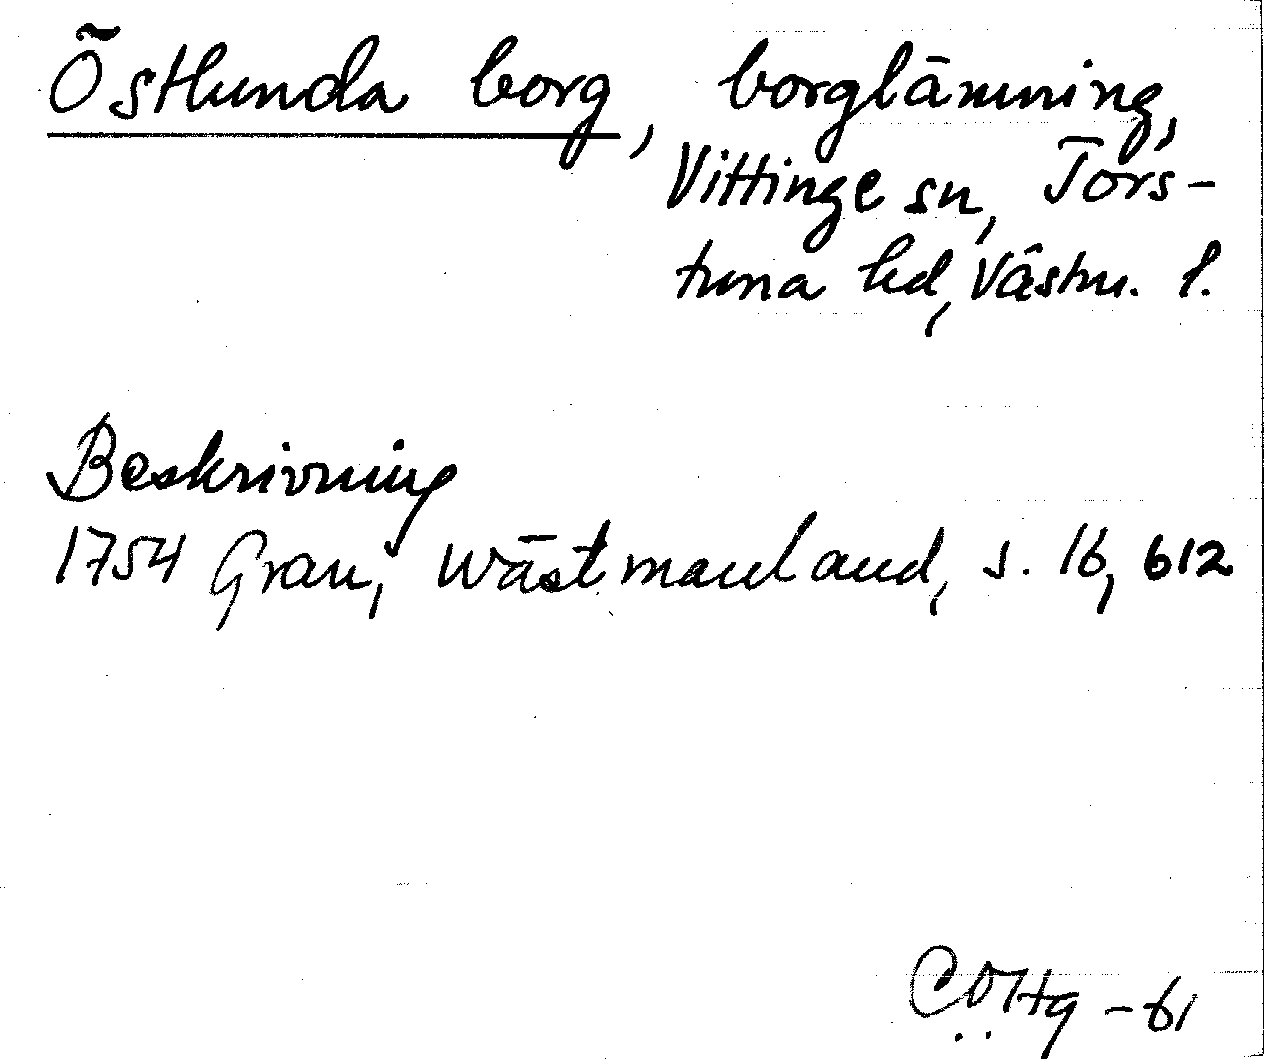 Östlunda borg, borglämning,
Vittinge sn, Tors-
tuna hd, Västm. l.
Beskrivning
1754 Grau, Wästmanland, s. 16, 612
-61